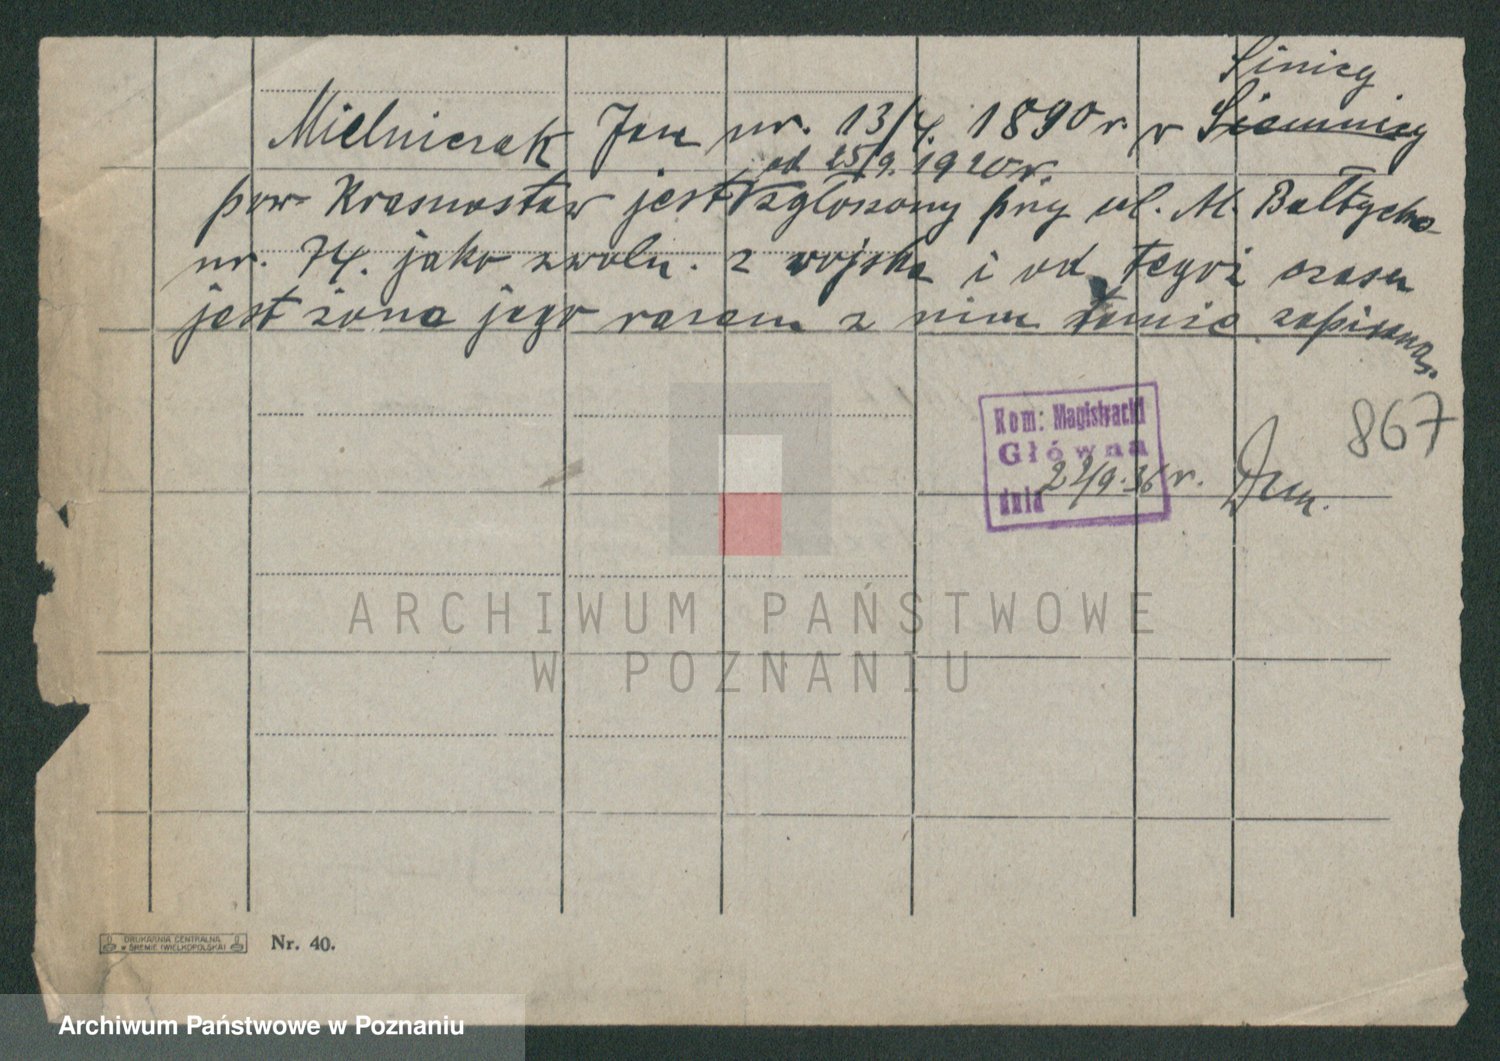 Sinicy
Mielniczak Jan ur. 13/4. 1890 r. w Siemnicy
od 25/9. 1920 r.
pow Krasnostaw jest zgłoszony przy ul. M.
nr. 74. jako zwoln. z wojska i od tegoż czasu
jest żona jego razem z nim tamże zapisana.
867
Kom: Magistracki
Główna
dnia 22/9.36 r.
ARCHIWUM PAŃSTWOWE
W POZNANIU
DRUKARNIA CENTRALNA
W ŚREMIE (WIELKOPOLSKA)
Nr. 40.
Archiwum Państwowe w Poznaniu